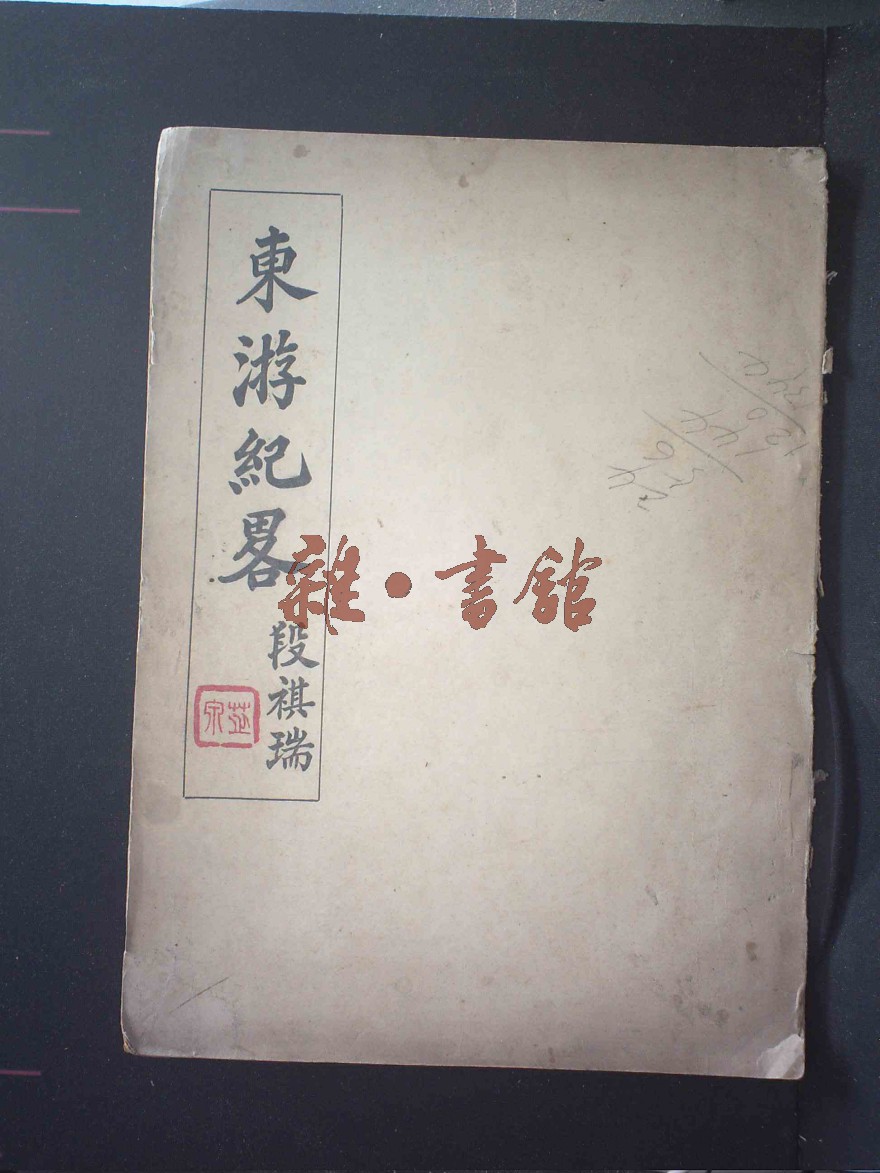 東游紀畧
段祺瑞
芝泉
雜·書館